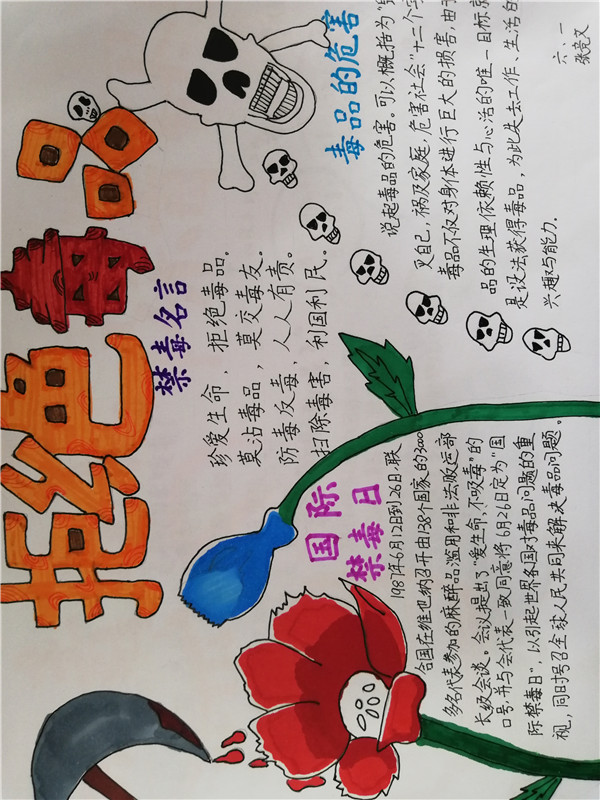 拒绝毒品
国际
禁毒日
1987年6月12日到26日，联
合国在维也纳召开由138个国家的3000
多名代表参加的麻醉品滥用和非法贩运部
长级会谈。会议提出了"爱生命，不吸毒"的
口号，并与会代表一致同意将6月26日定为"国
际禁毒日"，以引起世界各国对毒品问题的重
视，同时号召全球人民共同来解决毒品问题。
禁毒名言
珍爱生命，拒绝毒品。
莫沾毒品，莫交毒友。
防毒反毒，人人有责。
扫除毒害，利国利民。
毒品的危害
说起毒品的危害。可以概括为"
灭自己，祸及家庭，危害社会"十二个字
毒品不仅对身体进行巨大的损害，由
品的生理依赖性与心活的唯一目标
是设法获得毒品，为此失去工作、生活的
兴趣与能力.
六一